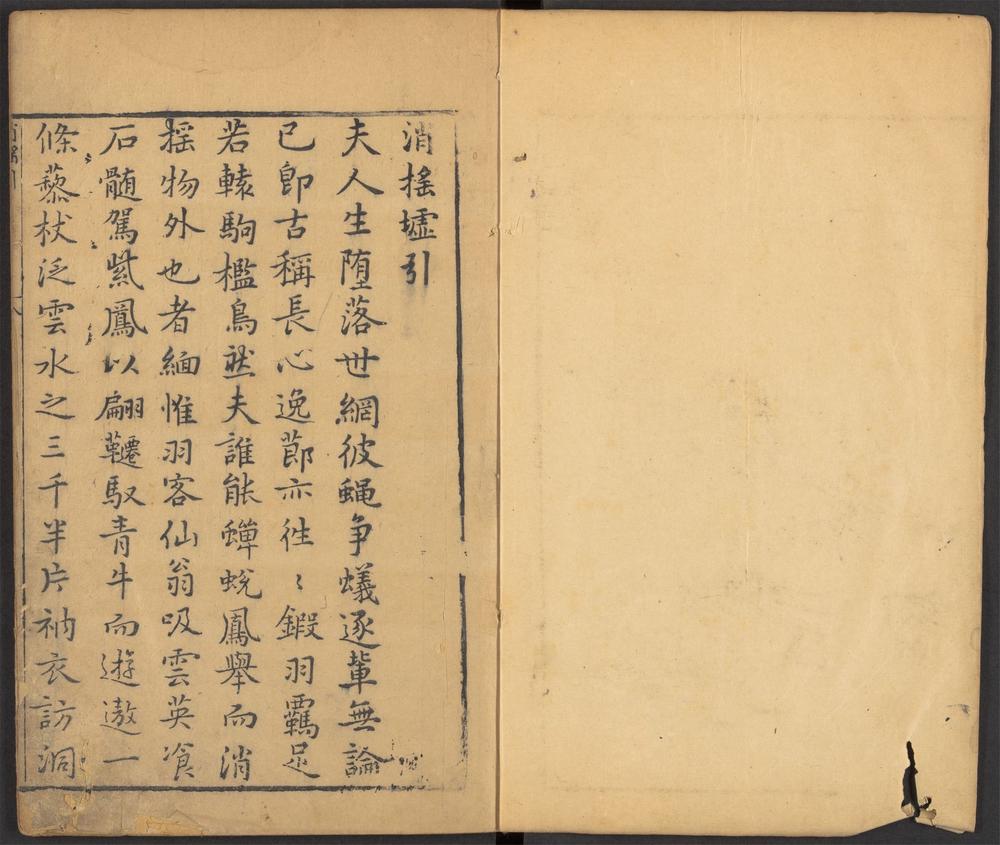 消搖墟引
夫人生堕落世網彼蝇争蟻逐軰無論
已即古稱長心逸莭亦徃〻鍜羽羈足
若轅駒檻鳥然夫誰能蟬蛻鳳舉而消
揺物外也者緬惟羽客仙翁吸雲英飡
石髓駕紫鳳以翩韆馭青牛而逰遨一
條藜杖泛雲水之三千半片衲衣訪洞